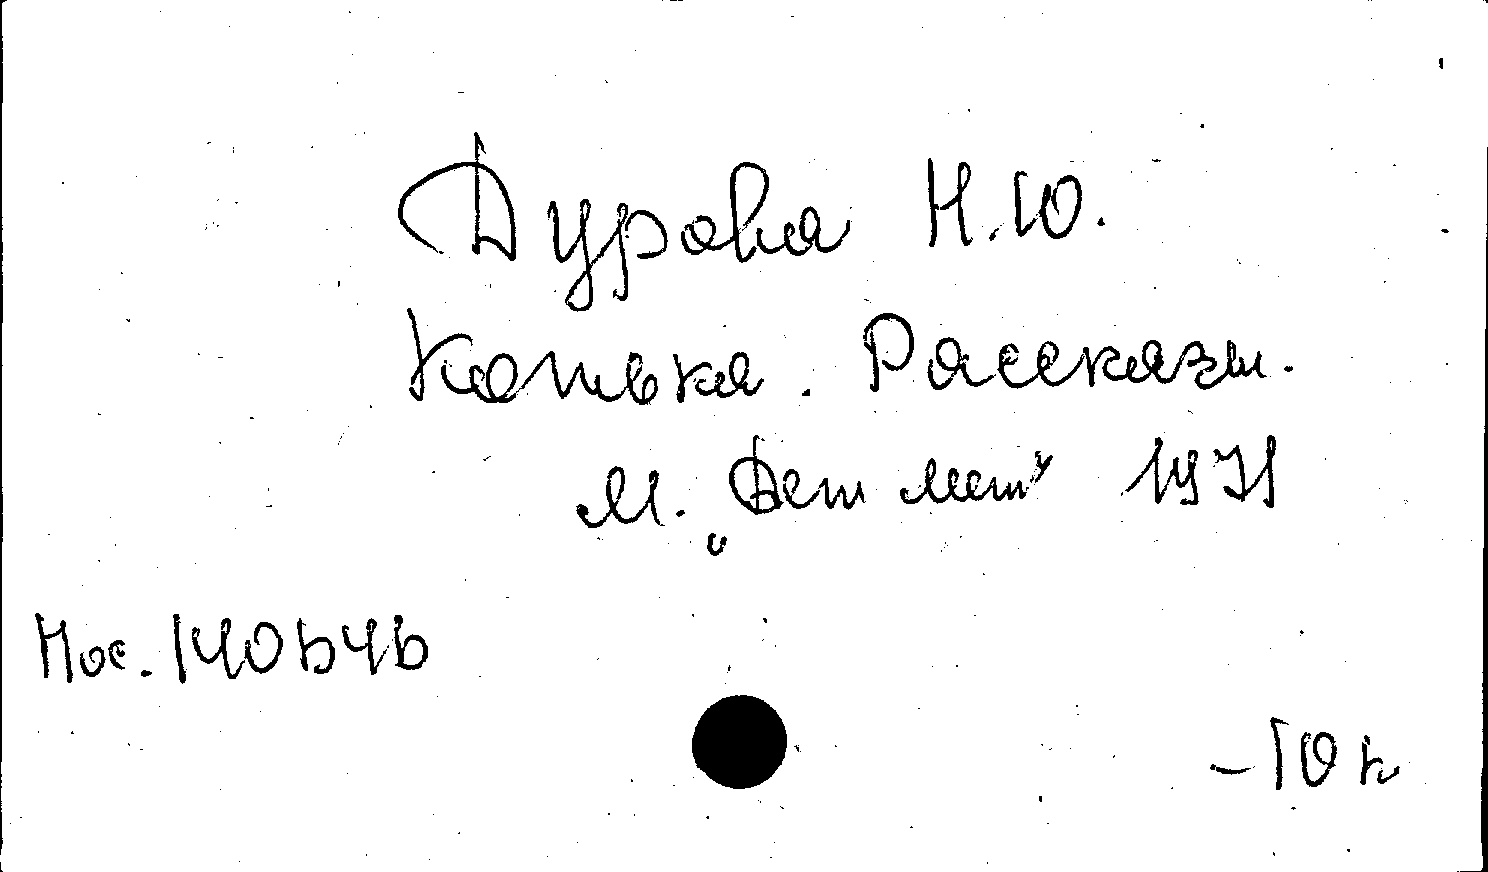 Дурова Н.Ю.
Котька. Рассказы.
М. „Дет лит" 1971
Нос. 140546
-10 к